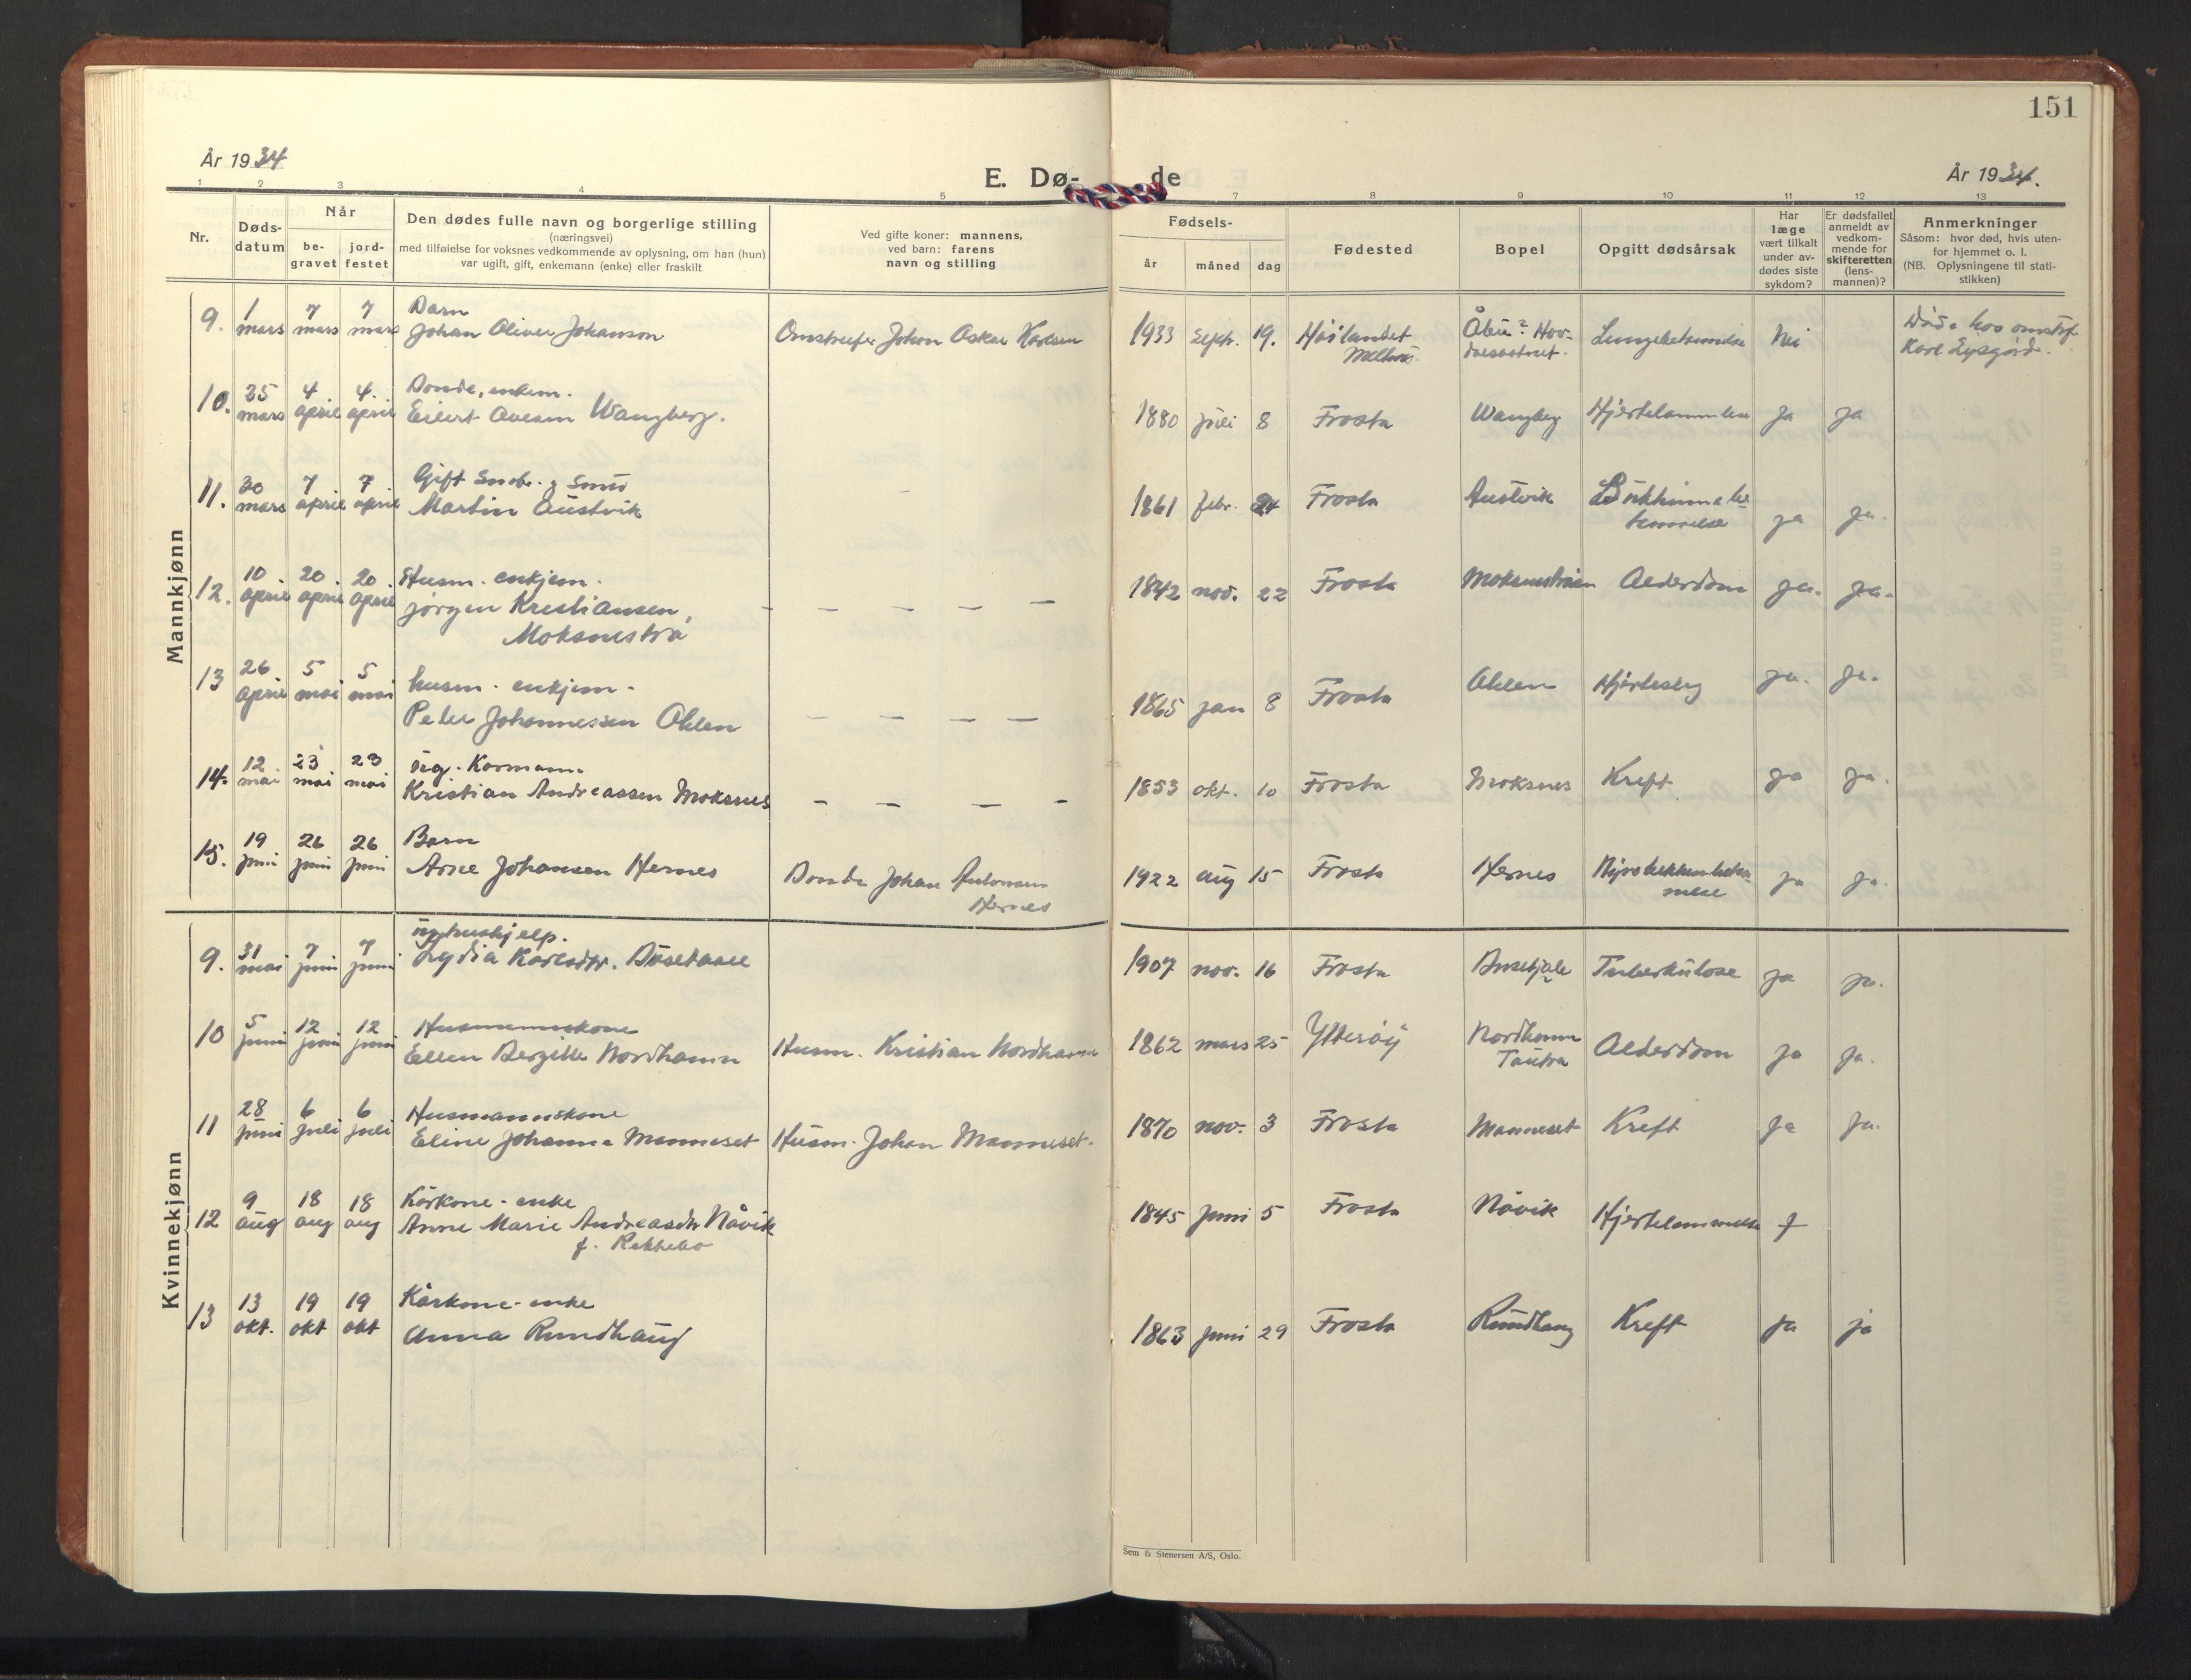 151
År 1934
E. Dø-
de
År 1934.
1 2 3 4 5 7 8 9 10 11 12 13
Nr.
Døds-
datum
Når
be-
gravet
jord-
festet
Den dødes fulle navn og borgerlige stilling
(næringsvei)
med tilføielse for voksnes vedkommende av oplysning, om han (hun)
var ugift, gift, enkemann (enke) eller fraskilt
Ved gifte koner: mannens,
ved barn: farens
navn og stilling
Fødsels-
år
måned
dag
Fødested
Bopel
Opgitt dødsårsak
Har
læge
vært tilkalt
under av-
dødes siste
sykdom?
Er dødsfallet
anmeldt av
vedkom-
mende for
skifteretten
(lens-
mannen)?
Anmerkninger
Såsom: hvor død, hvis uten-
for hjemmet o. l.
(NB. Oplysningene til stati-
stikken)
Mannkjønn
9. 1 mars 7 mars 7 mars Barn
Johan Oliver Johanson Omstreifer Johan Oskar Karlsen 1933 septr. 19. Høilandet Nei
10. 25 mars 4 april 4. april Bonde, enkem.
Eilert Wangberg. 1880 juli 8 Frosta Wangberg Hjertelammelse ja ja
11. 30 mars 7 april 7 april Gift
Martin Austvik 1861 febr. 24 Frosta Austvik ja ja.
12. 10 april 20. april 20. april Husm. enkjem.
Jørgen Kristiansen, — — — — — 1842 nov. 22 Frosta Alderdom ja. ja.
Moksnestrø
13 26 april 5 mai 5 mai husm. enkjem.
Peter Johannessen Ahlen — — — — 1865 jan 8 Frosta Ahlen ja. ja.
14. 12 mai 23 mai 23 mai ug. Kårmann
Kristian Andreassen Moksnes — — — — 1853 okt. 10 Frosta Moksnes Kreft ja ja.
15. 19 juni 26 juni 26 juni Barn
Arne Johansen Hernes Bonde Johan Antonsen
Hernes 1922 aug 15 Frosta Hernes ja ja.
Kvinnekjønn
9. 31 mai 7 juni 7 juni ug. hushjelp.
Lydia Karlsdtr. 1907 nov. 16 Frosta Tuberkulose ja ja.
10 5 juni 12 juni 12 juni Husmannskone
Ellen Bergitte Nordhamn Husm. Kristian Nordhamn 1862 mars 25 Ytterøy Nordhamn
Tautra Alderdom ja ja.
11 28 juni 6 juli 6 juli Husmannskone
Eline Johanna Manneset Husm. Johan Manneset. 1870 nov. 3 Frosta Manneset Kreft ja ja.
12 9 aug 18 aug 18 aug Kårkone - enke
Anne Marie Andreasdtr Nåvik
f. 1845 juni 5 Frosta Nåvik Hjertelammelse
13 13 okt. 19 okt 19 okt Kårkone - enke
Anna Rundhaug 1863 juni 29 Frosta Rundhaug Kreft ja ja
Sem & Stenersen A/S, Oslo.